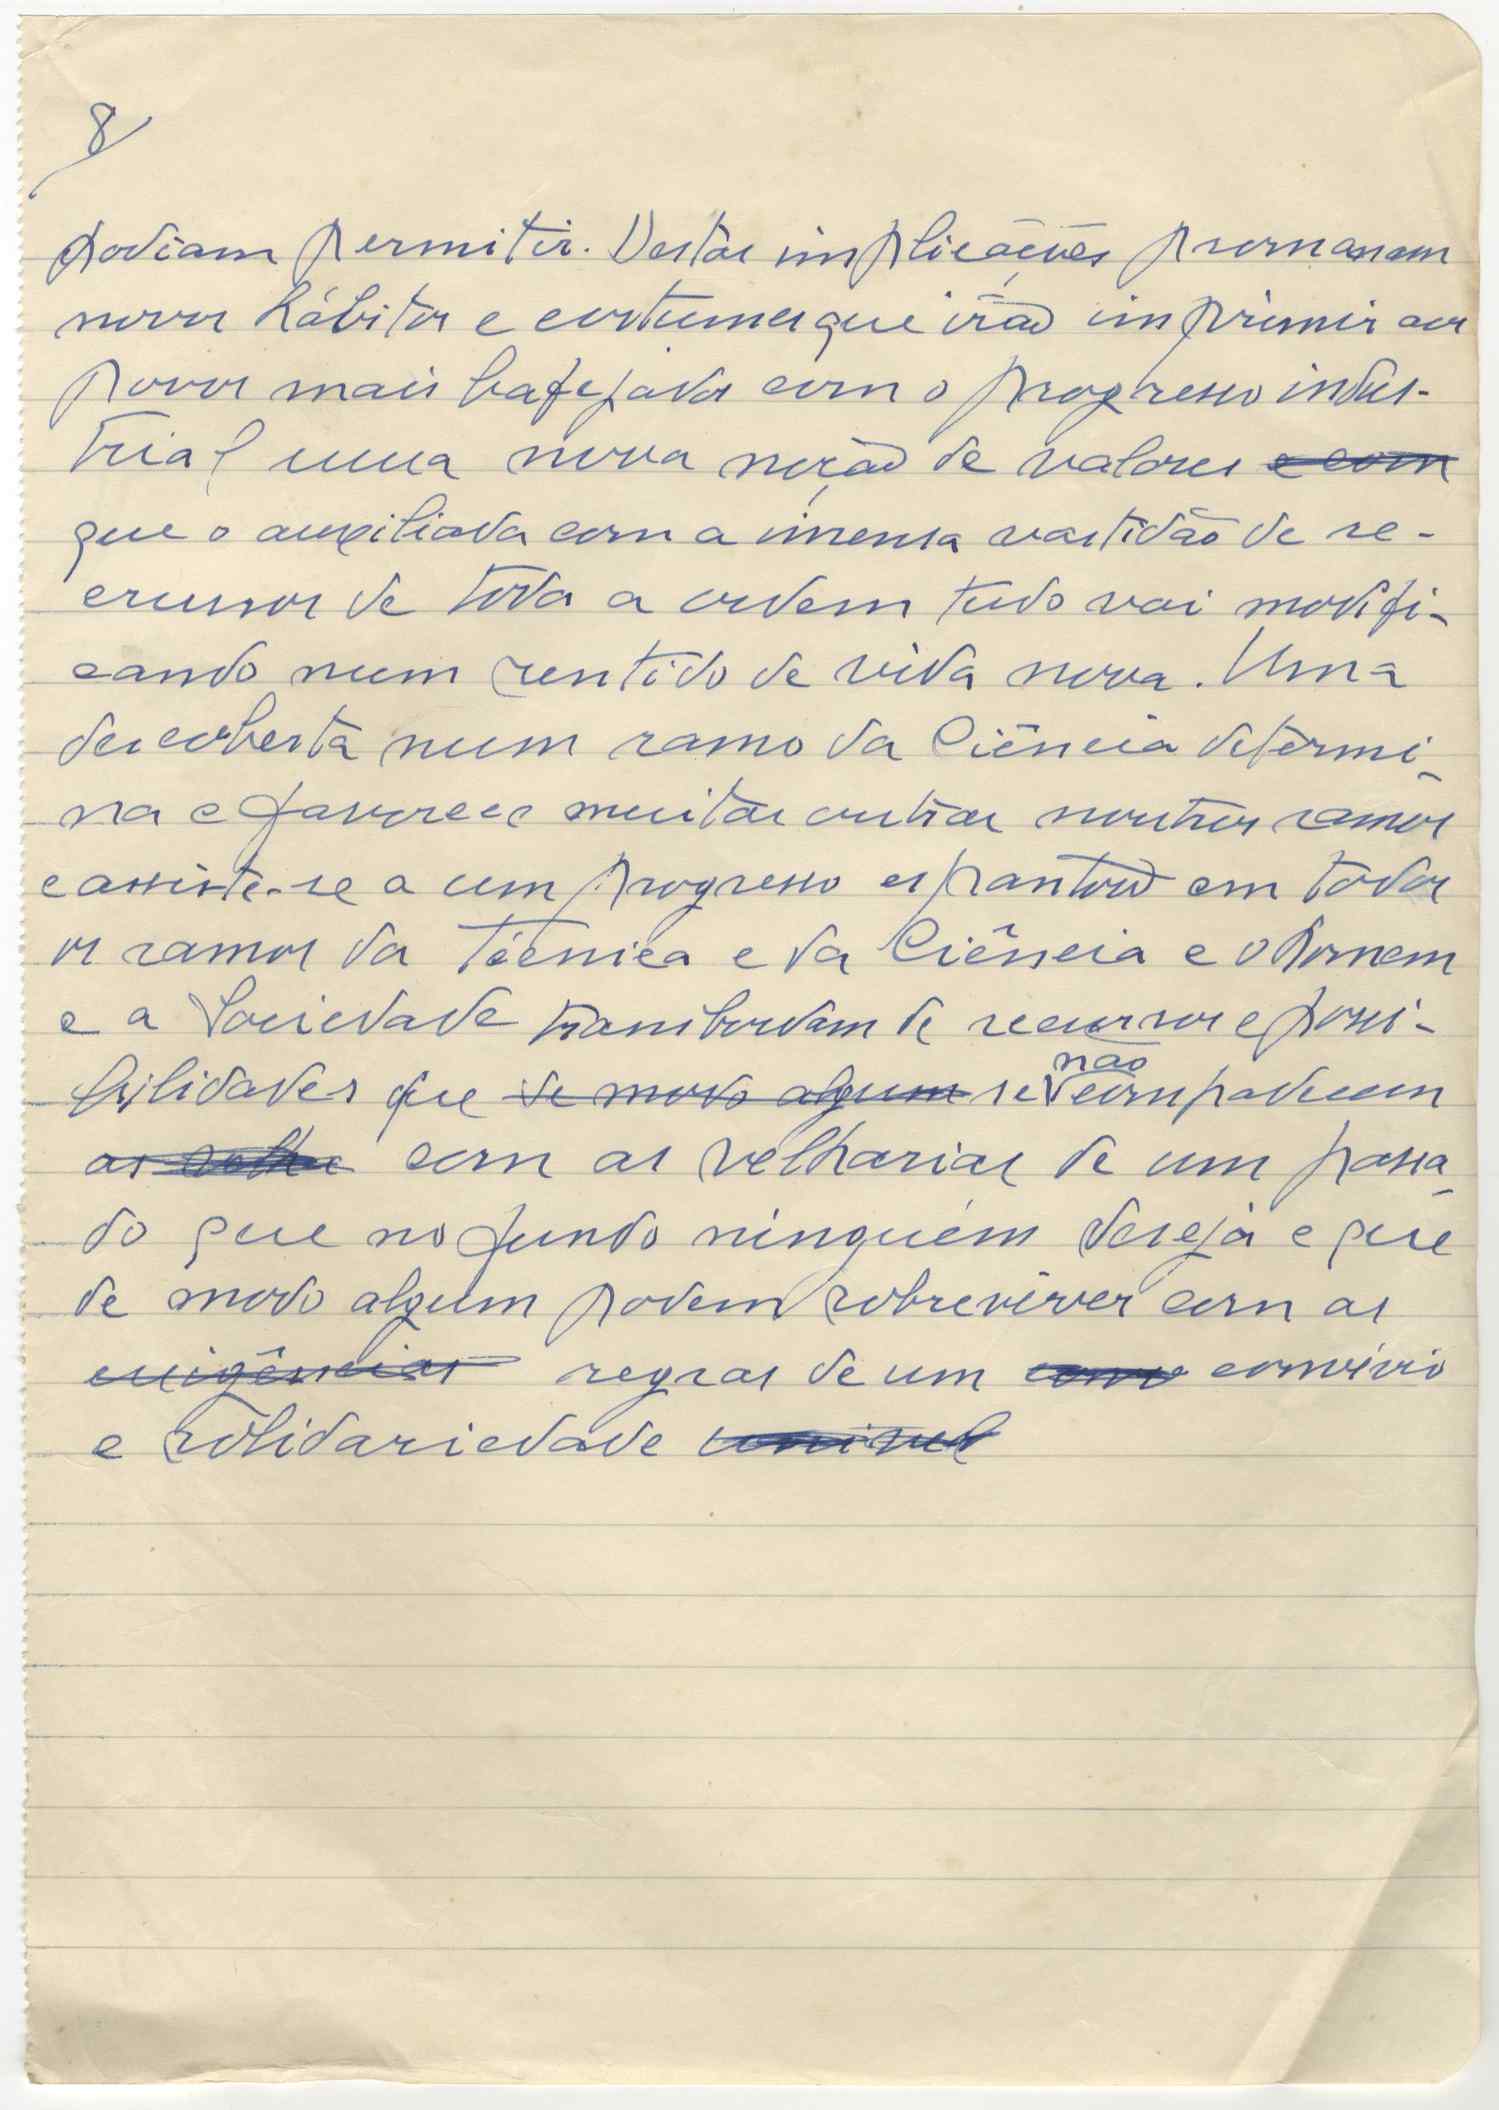 8
podiam permitir. Destas implicações promanam
novos hábitos e costumes que irão imprimir aos
povos mais bafejados com o progresso indus-
trial uma nova noção de valores e com
que o auxiliada com a imensa vastidão de re-
cursos de toda a ordem tudo vai modifi-
cando num sentido de vida nova. Uma
descoberta num ramo da Ciência determi-
na e favorece muitas outras noutros ramos
e assiste-se a um progresso espantoso em todos
os ramos da Técnica e da Ciência e o Homem
e a Sociedade transbordam de recursos e possi-
não
bilidades que de modo algum se compadecem
as velha com as velharias de um passa-
do que no fundo ninguém deseja e que
de modo algum podem sobreviver com as
exigências regras de um conv convívio
e solidariedade univer